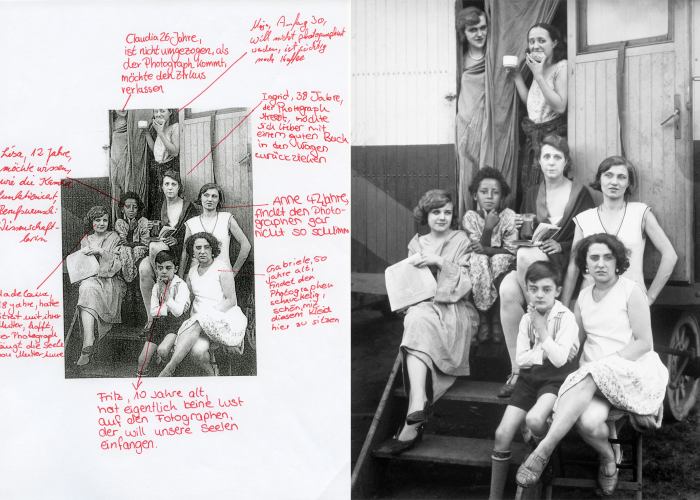 Claudia 26 Jahre,
ist nicht umgezogen, als
der Photograph kommt,
möchte den Zirkus
verlassen
Anfang 30,
will nicht photographiert
werden, ist süchtig
nach Kaffee
Ingrid, 38 Jahre,
der Photograph
stresst, möchte
sich lieber mit
einem guten Buch
in den Wagen
zurückziehen
Lisa, 12 Jahre,
möchte wissen,
wie die Kamera
funktioniert,
Berufswunsch:
Wissenschaft-
lerin
Anne 42 Jahre,
findet den Photo-
graphen gar
nicht so schlimm
Gabriele, 50
Jahre alt,
findet den
Photographen
schwierig,
schön, mit
diesem Kleid
hier zu sitzen
18 Jahre, hatte
mit ihrer
Mutter, hofft,
der Photograph
fängt die Seele
von Mutter
Fritz, 10 Jahre alt,
hat eigentlich keine Lust
auf den Fotographen,
der will unsere Seelen
einfangen.